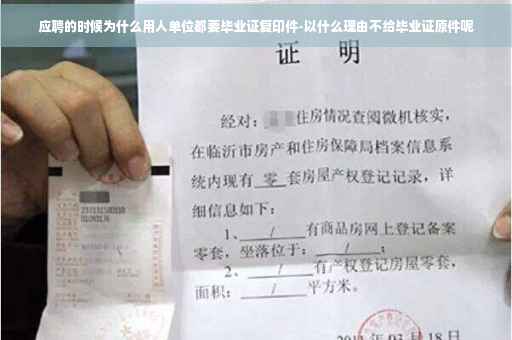 应聘的时候为什么用人单位都要毕业证复印件-以什么理由不给毕业证原件呢
证 明
经对: 住房情况查阅微机核实，
在临沂市房产和住房保障局档案信息系
统内现有 零 套房屋产权登记记录，详
细信息如下:
1、 / 有商品房网上登记备案
零套，坐落位于: / ;
2、 / 有产权登记房屋零套，
面积: / 平方米。
03 月 18 日